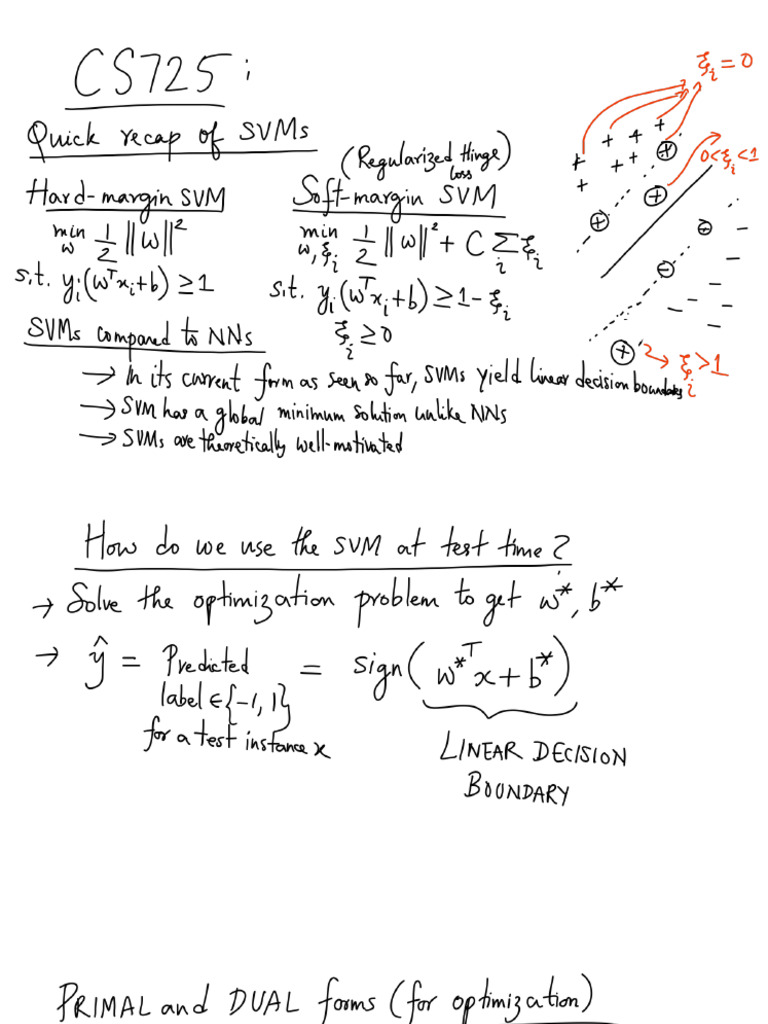 CS725:
Quick recap of SVMs
(Regularized Hinge loss)
Hard-margin SVM
Soft-margin SVM
min_w 1/2 ||w||²
s.t. y_i(w^T x_i + b) ≥ 1
min_{w, ξ_i} 1/2 ||w||² + C Σ_i ξ_i
s.t. y_i(w^T x_i + b) ≥ 1 - ξ_i
ξ_i ≥ 0
ξ_i = 0
0 < ξ_i < 1
ξ_i > 1
SVMs compared to NNs
→ In its current form as seen so far, SVMs yield linear decision boundaries
→ SVM has a global minimum solution unlike NNs
→ SVMs are theoretically well-motivated
How do we use the SVM at test time?
→ Solve the optimization problem to get w*, b*
→ ŷ = Predicted label ∈ {-1, 1} for a test instance x = sign(w*^T x + b*)
LINEAR DECISION
BOUNDARY
PRIMAL and DUAL forms (for optimization)